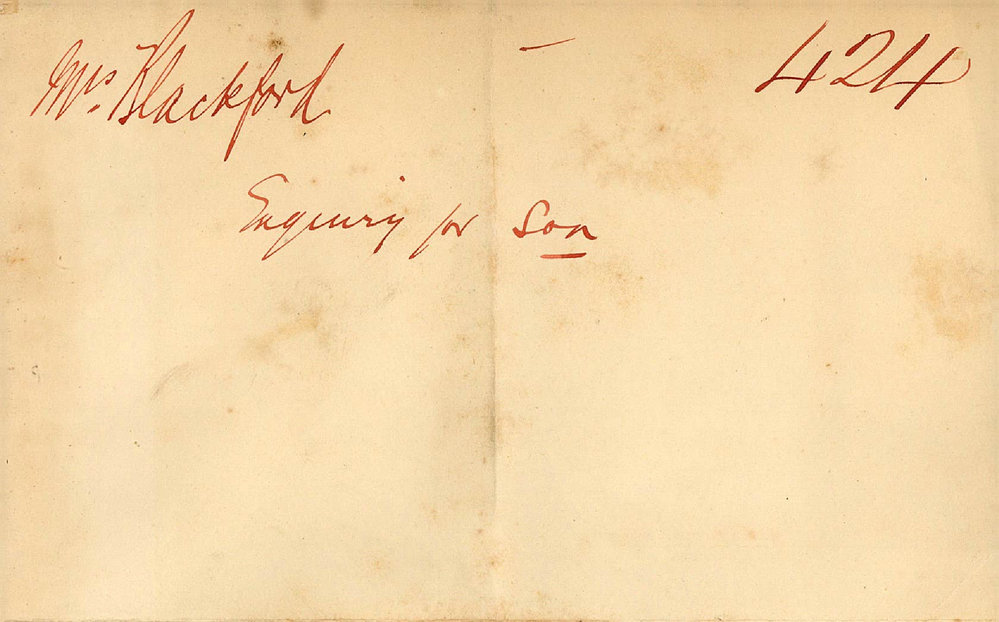 Mrs. Blackford — 424
Enquiry for Son